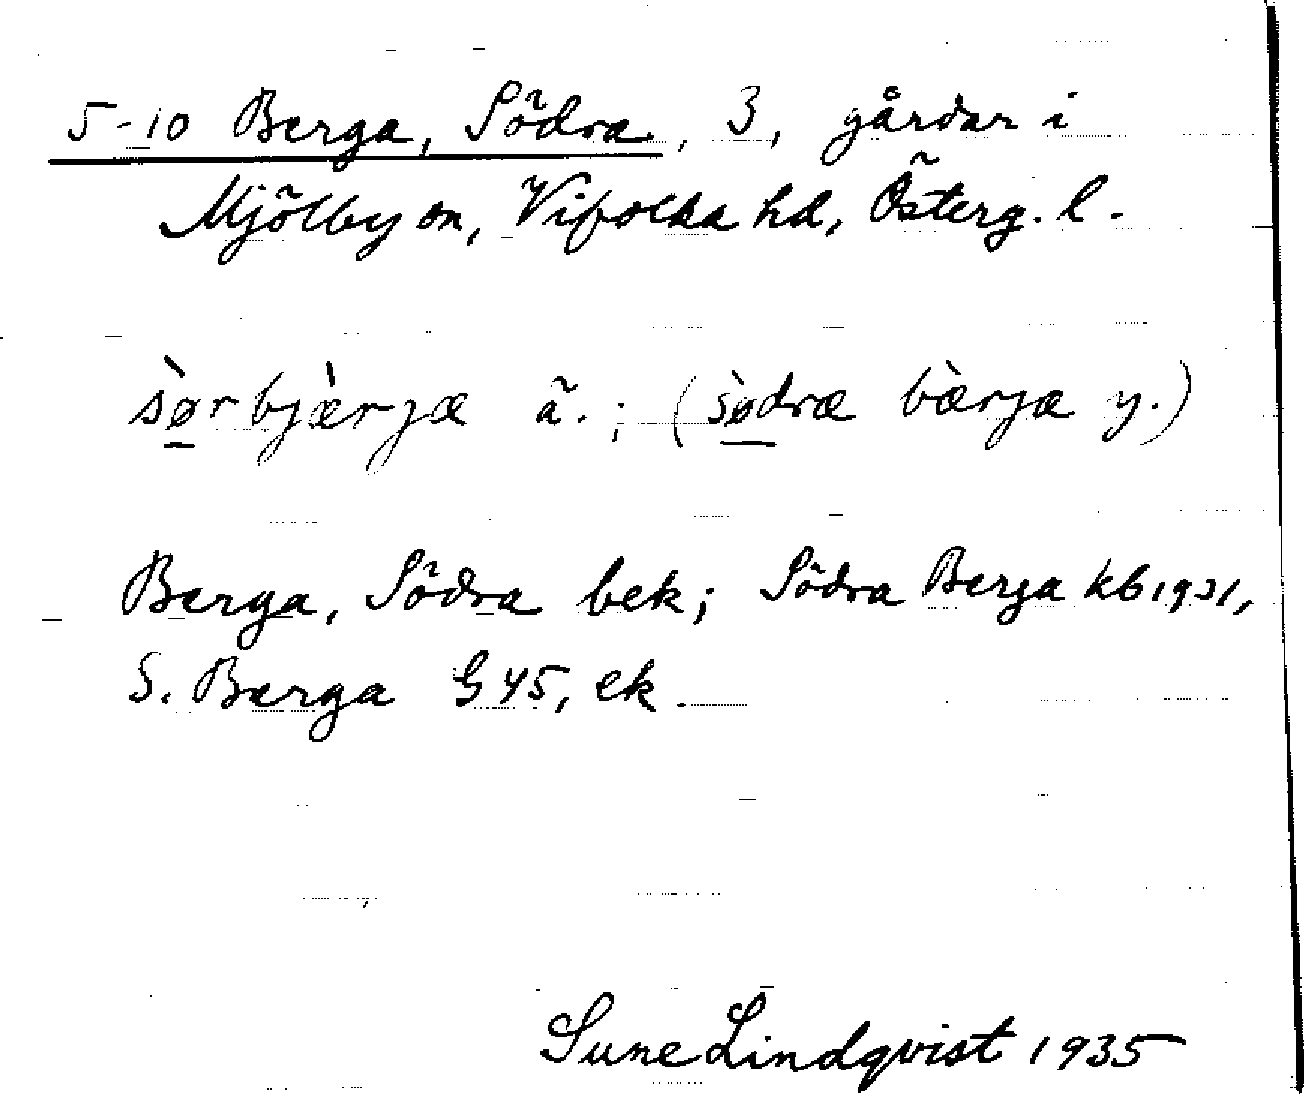 5-10 Berga, Södra, 3, gårdar i
Mjölby sn, Vifolka hd, Österg. l.
sø̀rbjæ̀rjæ ä.; (sø̀dræ bæ̀rjæ y.)
Berga, Södra bek; Södra Berga kb 1931,
S. Berga G 45, ek.
Sune Lindqvist 1935